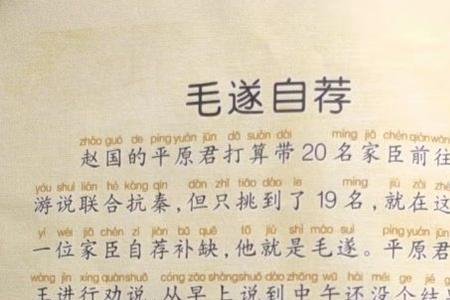 毛遂自荐
zhào guó de píng yuán jūn dǎ suàn dài míng jiā chén qián wǎng
赵国的平原君打算带20名家臣前往
yóu shuì lián hé kàng qín dàn zhǐ tiāo dào le míng jiù zài zhè
游说联合抗秦，但只挑到了19名，就在这
yí wèi jiā chén zì jiàn bǔ quē tā jiù shì máo suì píng yuán jūn
一位家臣自荐补缺，他就是毛遂。平原君
wáng jìn xíng quàn shuō cóng zǎo shàng shuō dào zhōng wǔ hái méi gè
王进行劝说，从早上说到中午还没个结果